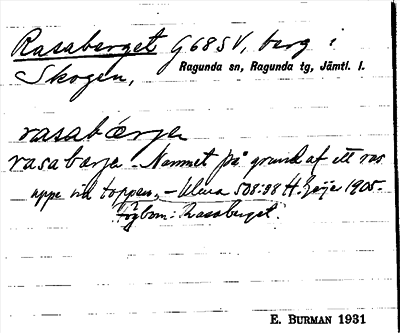 Rasaberget G68SV, berg i
Skogen, Ragunda sn, Ragunda tg, Jämtl. l.
rasabærje
rasabærje - Namnet på grund af ett ras
uppe vid toppen, - Uluva 508:88 H. Geijer 1905.
Högbom: Rasaberget.
E. BURMAN 1931